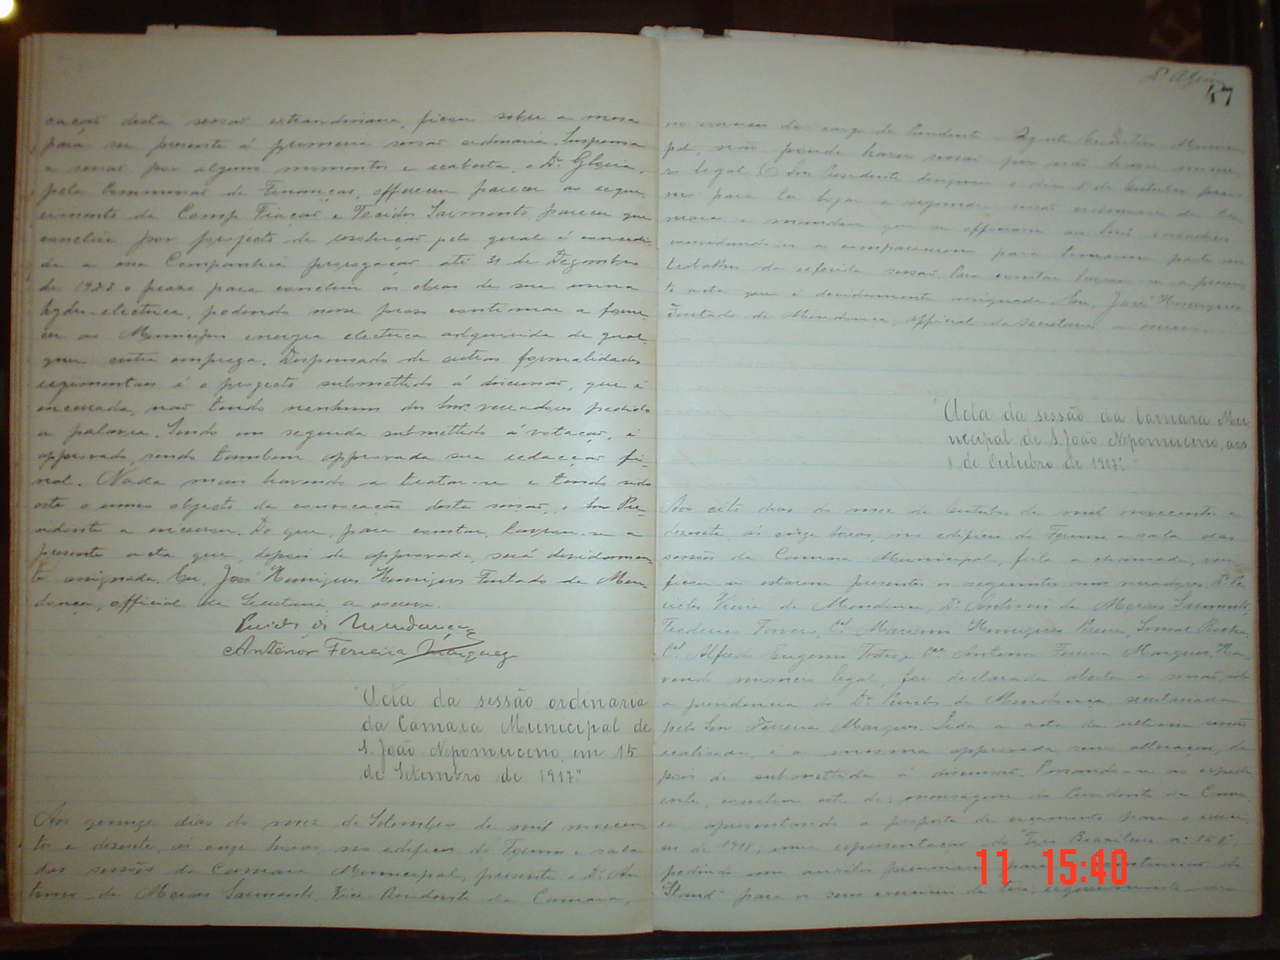 cação desta sessão extraordinaria, ficou sobre a mesa
para ser presente á primeira sessão ordinaria. Suspensa
a sessão por alguns momentos e reaberta, o Dr. Gloria,
pela Commissão de Finanças, offerece parecer ao reque-
rimento da Comp. Fiação e Tecidos Sarmento, parecer que
conclue por projecto de resolução pelo qual é concedi-
da a essa Companhia prorogação até 31 de Dezembro
de 1923 o prazo para concluir as obras de sua usina
hydro-electrica, podendo nesse prazo continuar a forne-
cer ao Municipio energia electrica adquirida de qual-
quer outra empreza. Dispensado de outras formalidades
regimentaes é o projecto submettido á discussão, que é
encerrada, não tendo nenhum dos Snrs. vereadores pedido
a palavra. Sendo em seguida submettido á votação, é
approvado, sendo tambem approvada sua redacção fi-
nal. Nada mais havendo a tratar-se e tendo sido
este o unico objecto da convocação desta sessão, o Snr. Pre-
sidente a encerra. Do que, para constar, lavrou-se a
presente acta que, depois de approvada, será devidamen-
te assignada. Eu, José Henriques Henriques Furtado de Men-
donça, official da Secretaria, a escrevi.
de Mendonça
Antenor Ferreira Marques
"Acta da sessão ordinaria
da Camara Municipal de
S. João Nepomuceno, em 15
de Setembro de 1917"
Aos quinze dias do mez de Setembro de mil novecen-
tos e dezesete, ás onze horas, no edificio do Forum e sala
das sessões da Camara Municipal, presente o Dr. An-
tonio de Moraes Sarmento, Vice Presidente da Camara,
47
no exercicio do cargo de Presidente e Agente Executivo Munici-
pal, não poude haver sessão por não haver nume-
ro legal. O Snr. Presidente designou o dia 8 de Outubro
para ter logar a segunda sessão ordinaria da Ca-
mara e mandou que se officiasse aos Snrs. vereadores
convidando-os a comparecerem para tomarem parte nos
trabalhos da referida sessão. Para constar lavrou-se a presen-
te acta que é devidamente assignada. Eu, José Henriques
Furtado de Mendonça, official da secretaria, a escrevi.
"Acta da sessão da Camara Mu-
nicipal de S. João Nepomuceno, aos
8 de Outubro de 1917"
Aos oito dias do mez de Outubro de mil novecentos e
dezesete, ás onze horas, no edificio do Forum e sala das
sessões da Camara Municipal, feita a chamada, veri-
ficou-se estarem presentes os seguintes Snrs. vereadores: Dr. Pe-
ricles Vieira de Mendonça, Dr. Antonio de Moraes Sarmento,
Frederico Cel. Marianno Henriques Pereira, Rocha,
Cel. Alfredo Eugenio e Antenor Ferreira Marques. Ha-
vendo numero legal, foi declarada aberta a sessão, sob
a presidencia do Dr. Pericles de Mendonça, secretariada
pelo Snr. Ferreira Marques. Lida a acta da ultima sessão
realisada, é a mesma approvada sem alteração, de-
pois de submettida á discussão. Passando-se ao expedi-
ente, constou este de: mensagem do Presidente da Cama-
ra, apresentando a proposta de orçamento para o exerci-
cio de 1918, uma representação do "Tiro Brasileiro nº
pedindo um auxilio pecuniario para do
"Stand" para os seus exercicios de tiro,
11 15:40